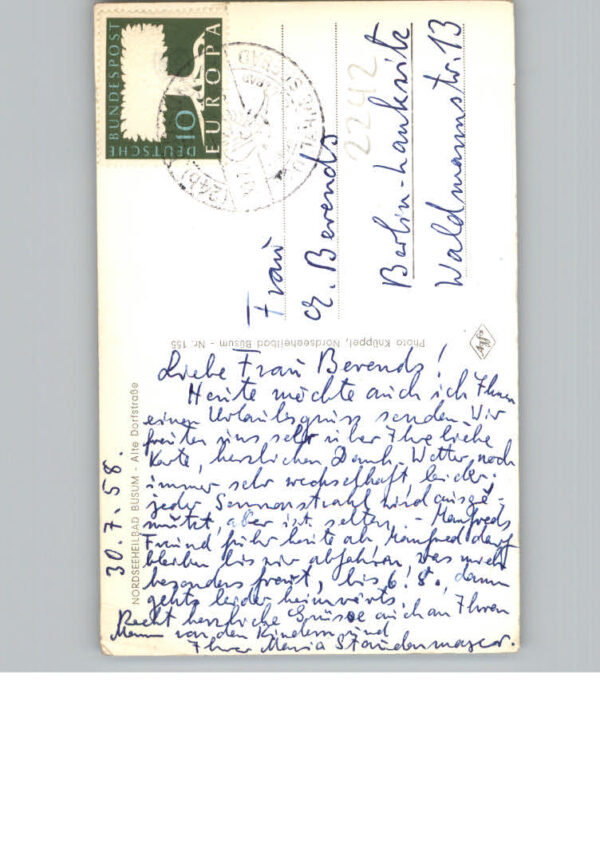 DEUTSCHE BUNDESPOST
10
EUROPA
(24b)
Frau
Ch. Berends
Berlin-Lankwitz
Waldmannstr. 13
2242
Photo Knüppel, Nordseeheilbad Büsum - Nr. 155
Agfa
NORDSEEHEILBAD BÜSUM - Alte Dorfstraße
30.7.58.
Liebe Frau Berends!
Heute möchte auch ich Ihnen
einen Urlaubsgruss senden. Wir
freuten uns sehr über Ihre liebe
Karte, herzlichen Dank. Wetter noch
immer sehr wechselhaft, leider.
jeder Sonnenstrahl wird ausge-
nützt, aber ist selten. - Manfreds
Freund fuhr heute ab, Manfred darf
bleiben bis wir abfahren, was mich
besonders freut, bis 6.8., dann
gehts leider heimwärts.
Recht herzliche Grüsse auch an Ihren
Mann von den Kindern und
Ihrer Maria Staudenmayer.